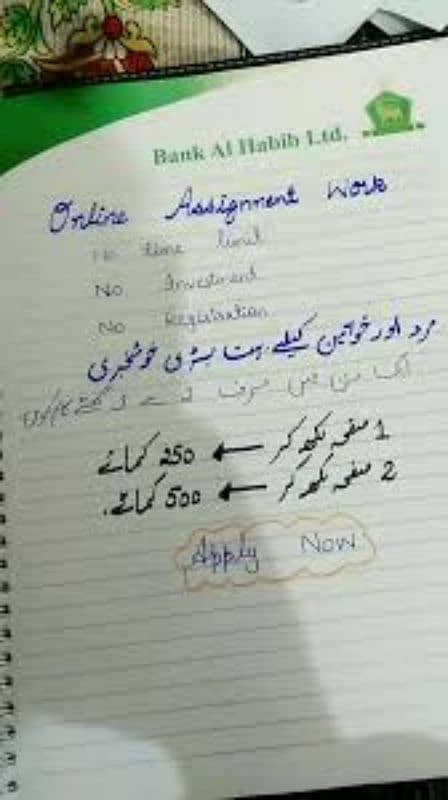 Bank Al Habib Ltd.
Online Assignment Work
No time limit
No Investment
No Registration
مرد اور خواتین کیلئے بہت بڑی خوشخبری
میں صرف گھنٹے کام کریں
1 صفحہ لکھ کر ← 250 کمائے
2 صفحہ لکھ کر ← 500 کمائے.
Apply Now